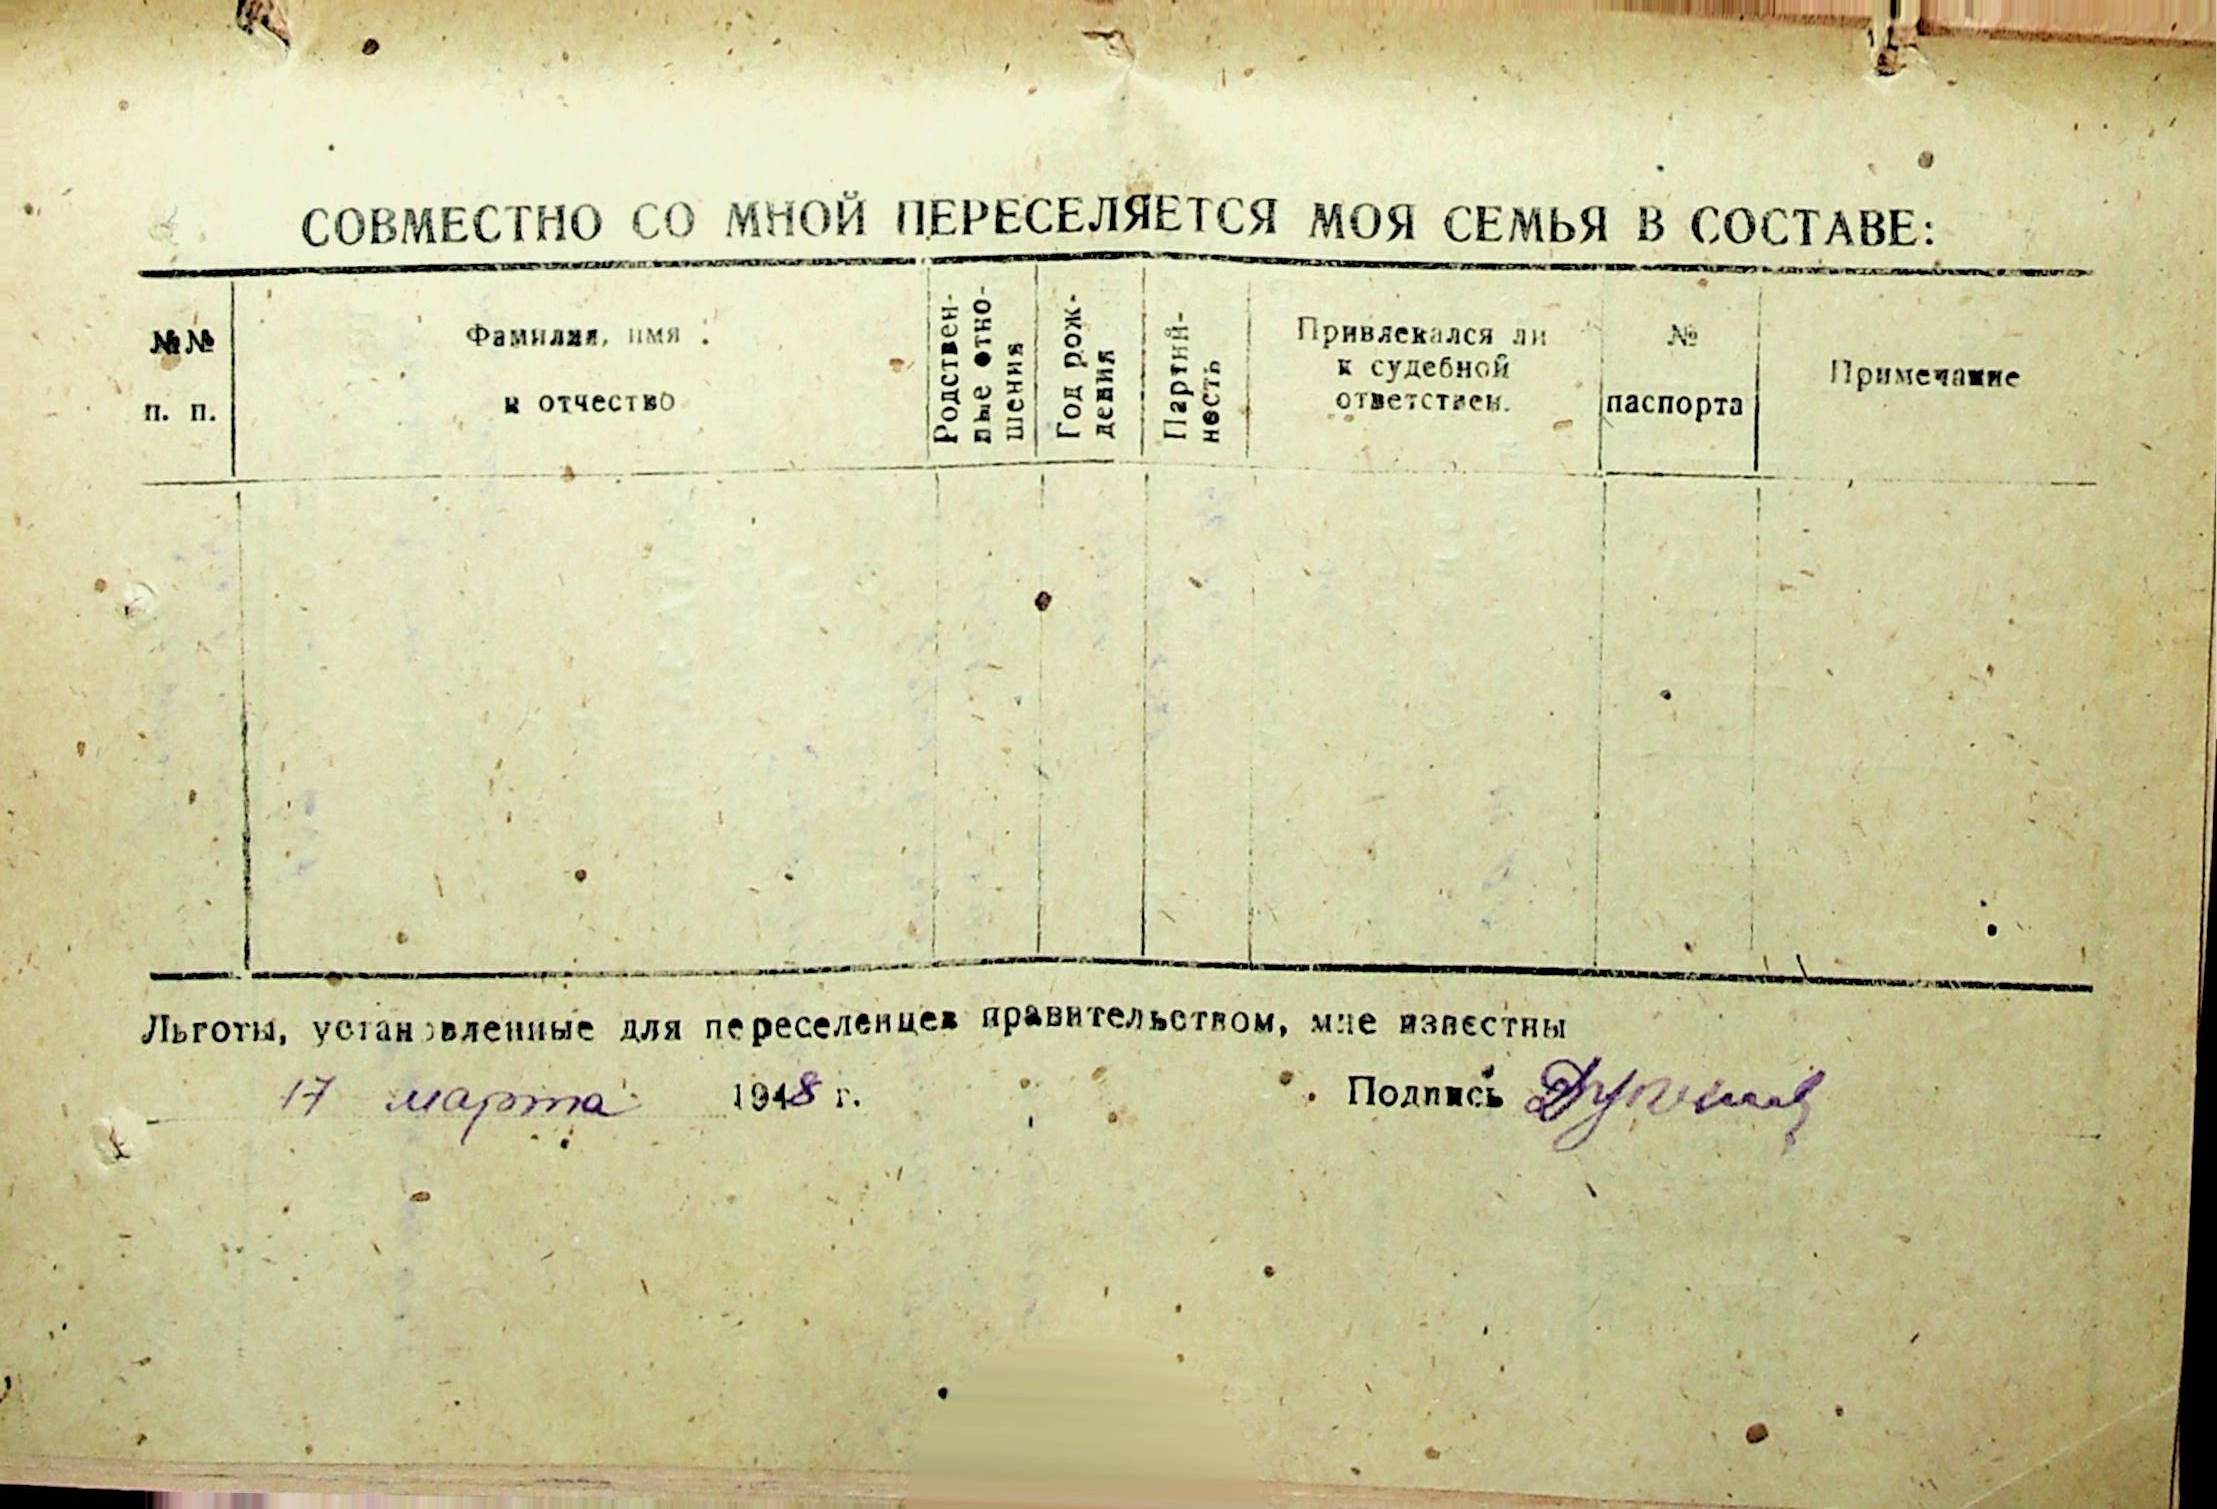 СОВМЕСТНО СО МНОЙ ПЕРЕСЕЛЯЕТСЯ МОЯ СЕМЬЯ В СОСТАВЕ:
№№
п. п.
Фамилия, имя
и отчество
Родствен-
ные отно-
шения
Год рож-
дения
Партий-
ность
Привлекался ли
к судебной
ответствен.
№
паспорта
Примечание
Льготы, установленные для переселенцев правительством, мне известны
17 марта 1948 г. Подпись